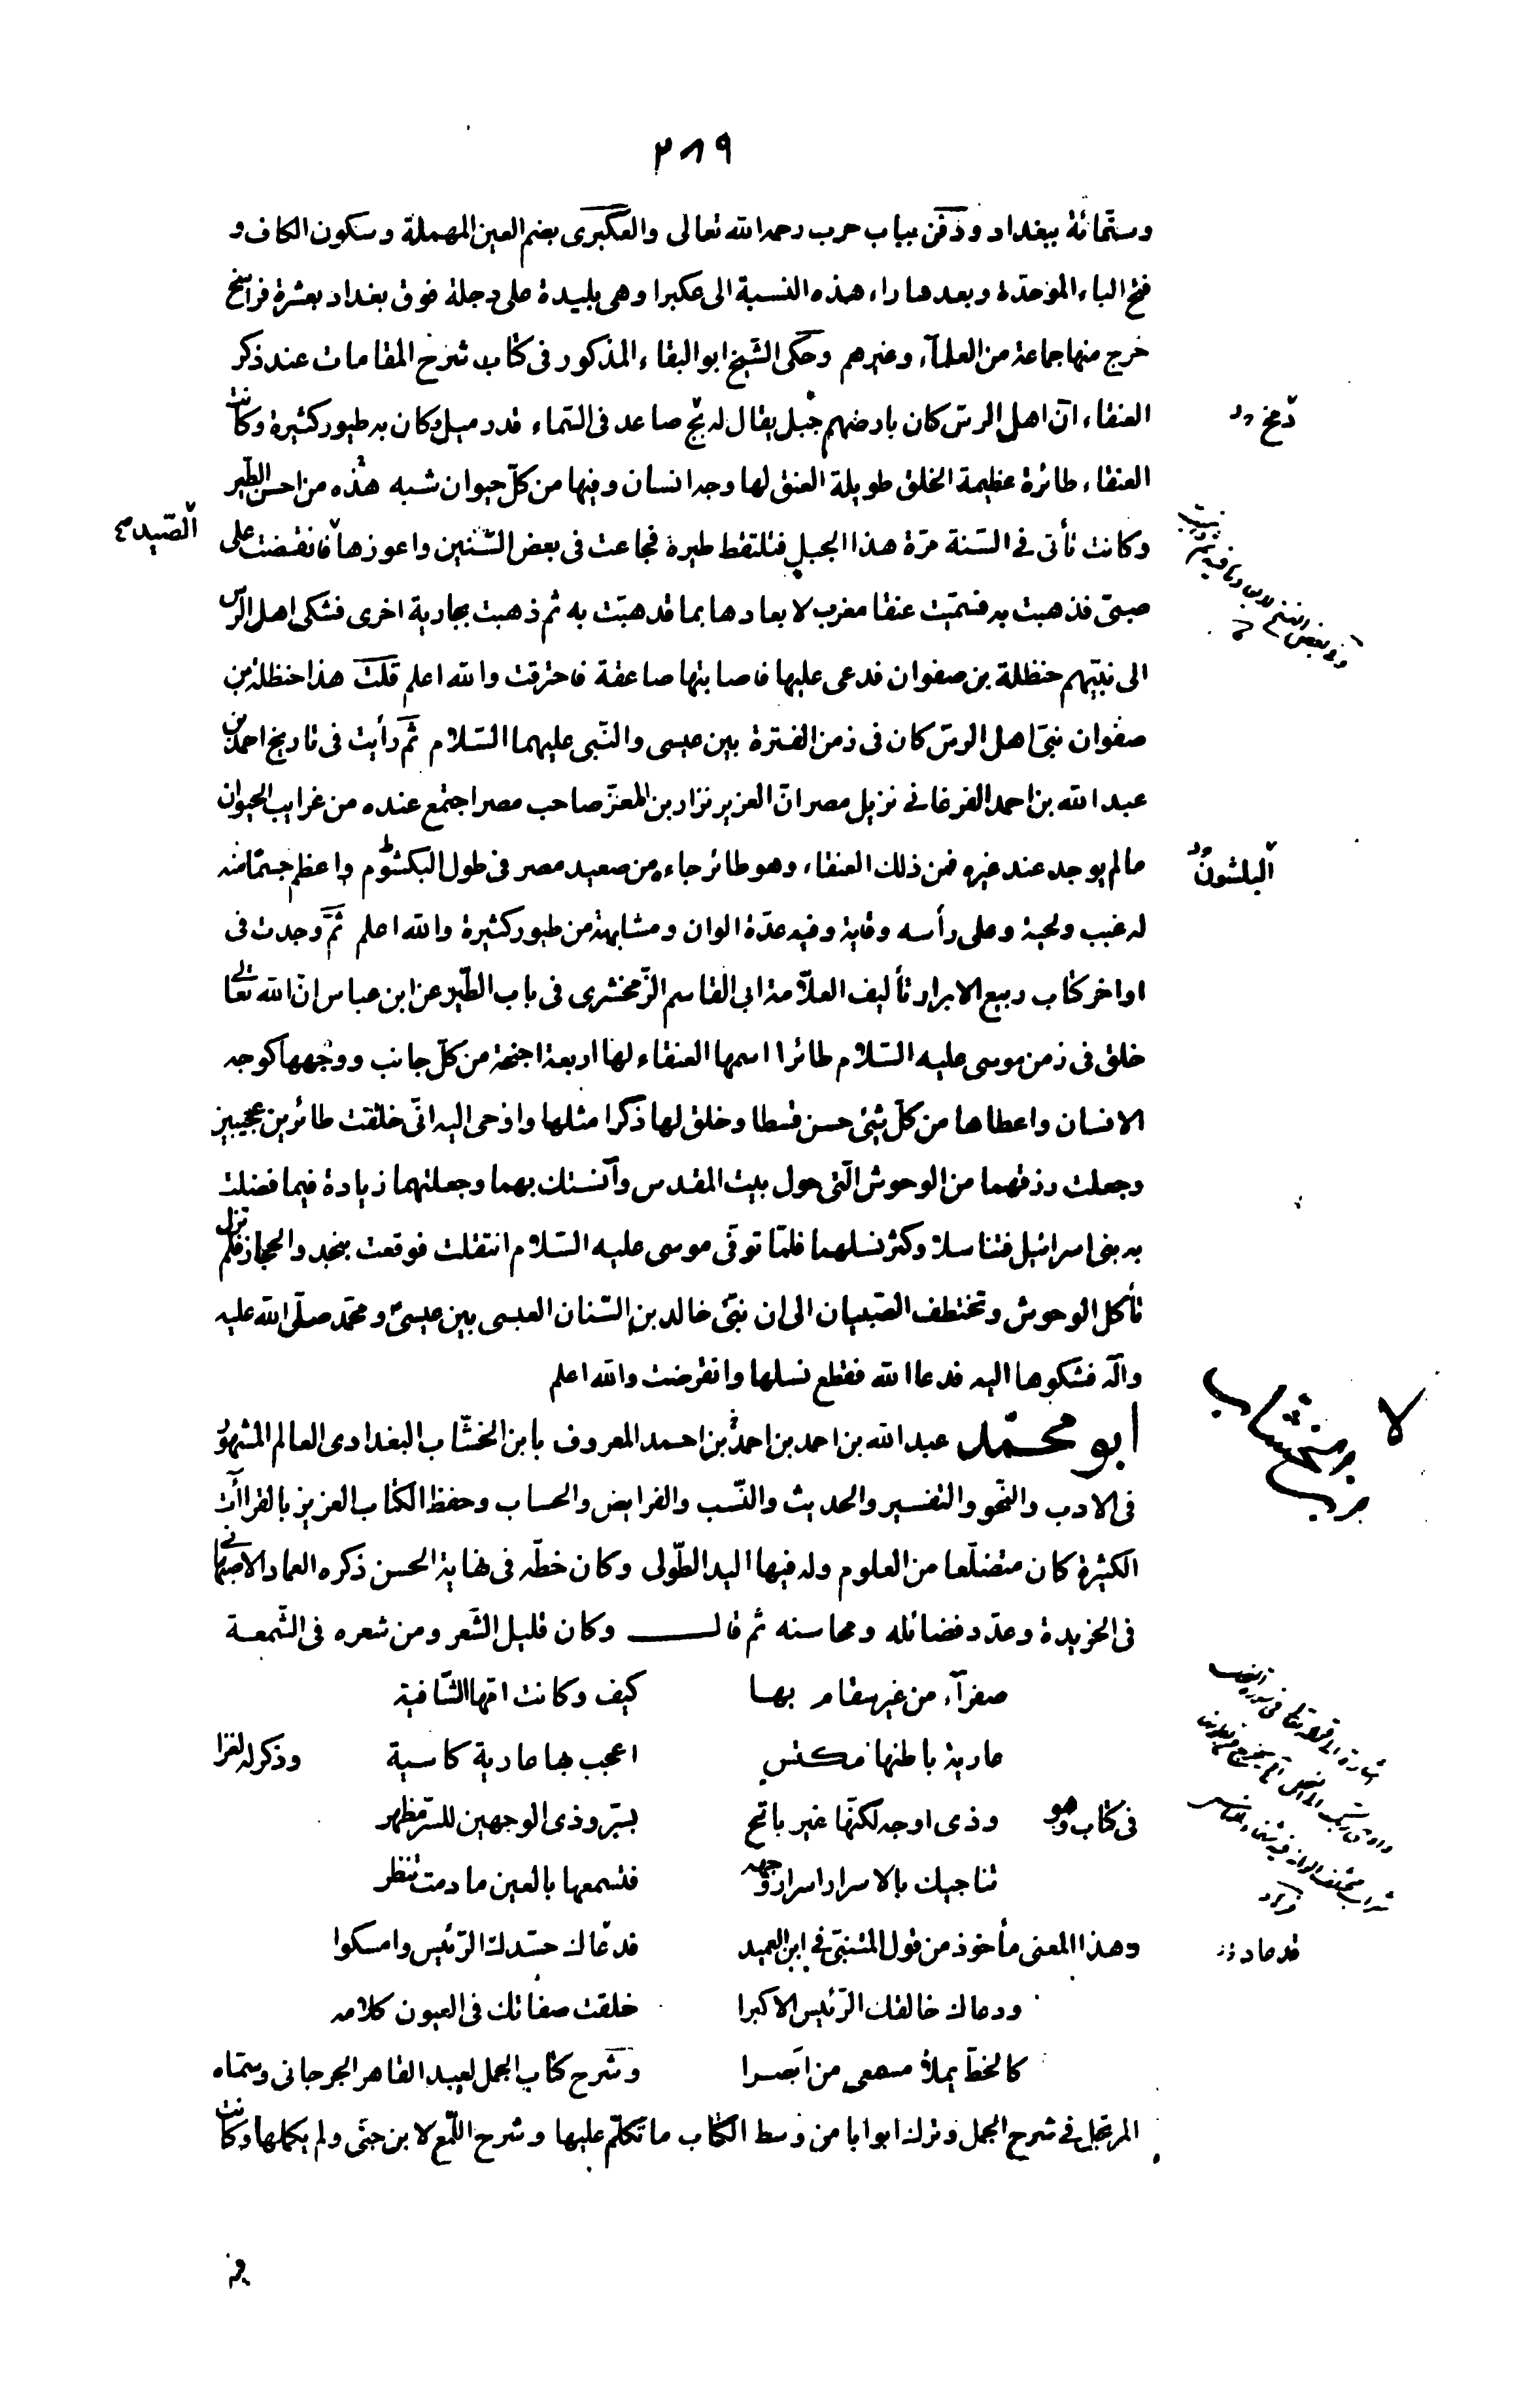 ٢٨٩
وستّمائة ببغداد ودفن بباب حرب رحمه الله تعالى والعكبرى بضم العين المهملة وسكون الكاف و
فتح الباء الموحّدة وبعدها راء هذه النسبة الى عكبرا وهى بليدة على دجلة فوق بغداد بعشرة فراسخ
خرج منها جماعة من العلمآء وغيرهم وحكى الشيخ ابو البقاء المذكور فى كتاب شرح المقامات عند ذكر
العنقاء انّ اهل الرسّ كان بارضهم جبل يقال له مخ صاعد فى السّماء قدر ميل وكان به طيور كثيرة وكانت
دمخ
العنقاء طائرة عظيمة الخلق طويلة العنق لها وجه انسان وفيها من كلّ حيوان شبه هذه من احسن الطّير
وكانت تأتى فى السّنة مرّة هذا الجبل فتلتقط طيره فجاعت فى بعض السّنين واعوزها فانقضت على
الصّيد
صبىّ فذهبت به فسمّيت عنقا مغرب لابعادها بما تذهبت به ثم ذهبت بجارية اخرى فشكى اهل الرّس
الى نبيّهم حنظلة بن صفوان فدعى عليها فاصابتها صاعقة فاحترقت والله اعلم قلت هذا حنظلة بن
صفوان نبىّ اهل الرسّ كان فى زمن الفترة بين عيسى والنّبى عليهما السّلام ثم رأيت فى تاريخ احمد بن
عبد الله بن احمد الفرغانى نزيل مصر انّ العزيز نزار بن المعزّ صاحب مصر اجتمع عنده من غرايب الحيوان
ما لم يوجد عند غيره فمن ذلك العنقاء وهو طائر جاءه من صعيد مصر فى طول البكشوم واعظم جسمًا منه
البلشون
له غبب ولحية وعلى رأسه وقاية وفيه عدّة الوان ومشابهة من طيور كثيرة والله اعلم ثمّ وجدت فى
اواخر كتاب ربيع الابرار تأليف العلّامة ابى القاسم الزّمخشرى فى باب الطّير عن ابن عباس انّ الله تعالى
خلق فى زمن موسى عليه السّلام طائرا اسمها العنقاء لها اربعة اجنحة من كلّ جانب ووجهها كوجه
الانسان واعطاها من كلّ شئ حسن قسطا وخلق لها ذكرا مثلها واوحى اليه انّى خلقت طائرين عجيبين
وجعلت رزقهما من الوحوش الّتى حول بيت المقدس وآنستك بهما وجعلتهما زيادة فيما فضلت
به بنى اسرائيل فتناسلا وكثر نسلهما فلمّا توفّى موسى عليه السّلام انتقلت فوقعت بنجد والحجاز فلم تزل
تأكل الوحوش وتختطف الصّبيان الى ان نبّئ خالد بن السّنان العبسى بين عيسى ومحمّد صلّى الله عليه
وآله فشكوها اليه فدعا الله فقطع نسلها وانقرضت والله اعلم
أبو محمّد عبد الله بن احمد بن احمد بن احمد المعروف بابن الخشّاب البغدادى العالم المشهور
فى الادب والنّحو والتفسير والحديث والنّسب والفرايض والحساب وحفظ الكتاب العزيز بالقراآت
الكثيرة كان متضلّعا من العلوم وله فيها اليد الطّولى وكان خطّه فى نهاية الحسن ذكره العماد الاصبهانى
فى الخريدة وعدّد فضائله ومحاسنه ثم قال وكان قليل الشّعر ومن شعره فى الشّمعة
صفرآء من غير سقام بها كيف وكانت امّها الشّافية
عارية باطنها مكتس اعجب بها عارية كاسية وذكر له لغزا
فى كتاب وهو وذى اوجه لكنّها غير بائح بسرّ وذى الوجهين للسّر مظهر
تناجيك بالاسرار اسرار وجهه فتسمعها بالعين ما دمت تنظر
وهذا المعنى مأخوذ من قول المتنبّى فى ابن العميد فدعاك حسّدك الرّئيس وامسكوا
ودعاك خالقك الرّئيس الاكبرا خلقت صفاتك فى العيون كلامه
كالخطّ يملأ مسمعى من ابصرا وشرح كتاب الجمل لعبد القاهر الجرجانى وسمّاه
المرتجل فى شرح الجمل وترك ابوابا من وسط الكتاب ما تكلّم عليها وشرح اللّمع لابن جنّى ولم يكملها وكانت